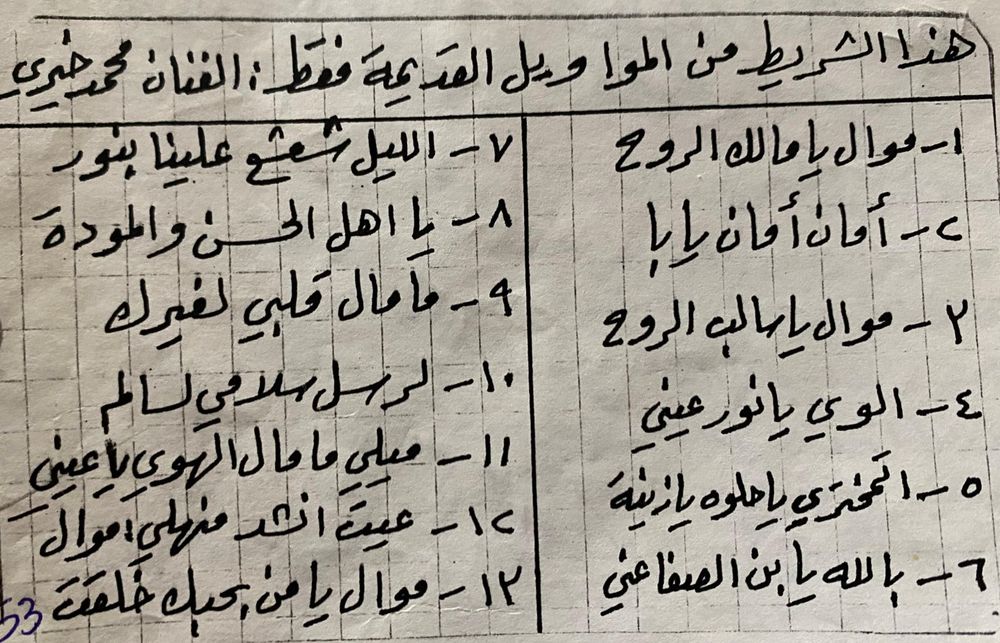 هذا الشريط من المواويل القديمة فقط: الفنان محمد خيري
١- موال يا مالك الروح
٢- أمان أمان يابا
٣- موال يا سالب الروح
٤- الوي يا نور عيني
٥- اتمختري يا حلوه يا زينة
٦- بالله يا بن الصنفاعني
٧- الليل شعشع علينا بنور
٨- يا اهل الحسن والمودة
٩- ما مال قلبي لغيرك
١٠- لرسل سلامي لسالم
١١- ميلي ما مال الهوي يا عيني
١٢- عييت انشد منهلي: موال
١٣- موال يا من بحبك خلقت
53